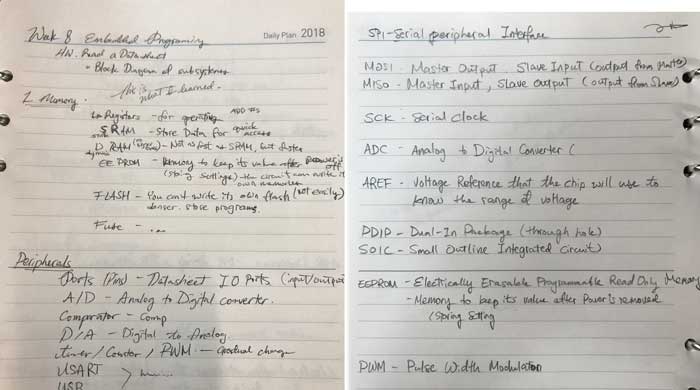 Week 8 Embedded Programming
Daily Plan 2018
HW. Read a Datasheet
- Block Diagram of subsystems
this is what I learned.
1. Memory.
Registers - for operating
SRAM - Store Data for quick access
static
D RAM - Not as fast as SRAM, but faster
EEPROM - Memory to keep its value after power's off
(Spring Settings) the circuit can write it own memories
FLASH - You can't write its own flash (not easily)
denser. store programs.
Fuse - ...
Peripherals
Ports (Pins) - Datasheet IO Ports (input/output
A/D - Analog to Digital converter.
Comparator - Comp
D/A - Digital to Analog
timer / Counter / PWM - Gradual change
USART
USB
SPI - Serial peripheral Interface
MOSI - Master Output, Slave Input (output from Master)
MISO - Master Input, Slave output (output from Slave)
SCK - Serial Clock
ADC - Analog to Digital Converter (
AREF - Voltage Reference that the chip will use to
know the range of voltage
PDIP - Dual-In Package (through hole)
SOIC - Small Outline Integrated Circuit)
EEPROM - Electrically Erasable Programmable Read Only Memory
- Memory to keep its value after Power's removed
(Spring Setting
PWM - Pulse Width Modulation